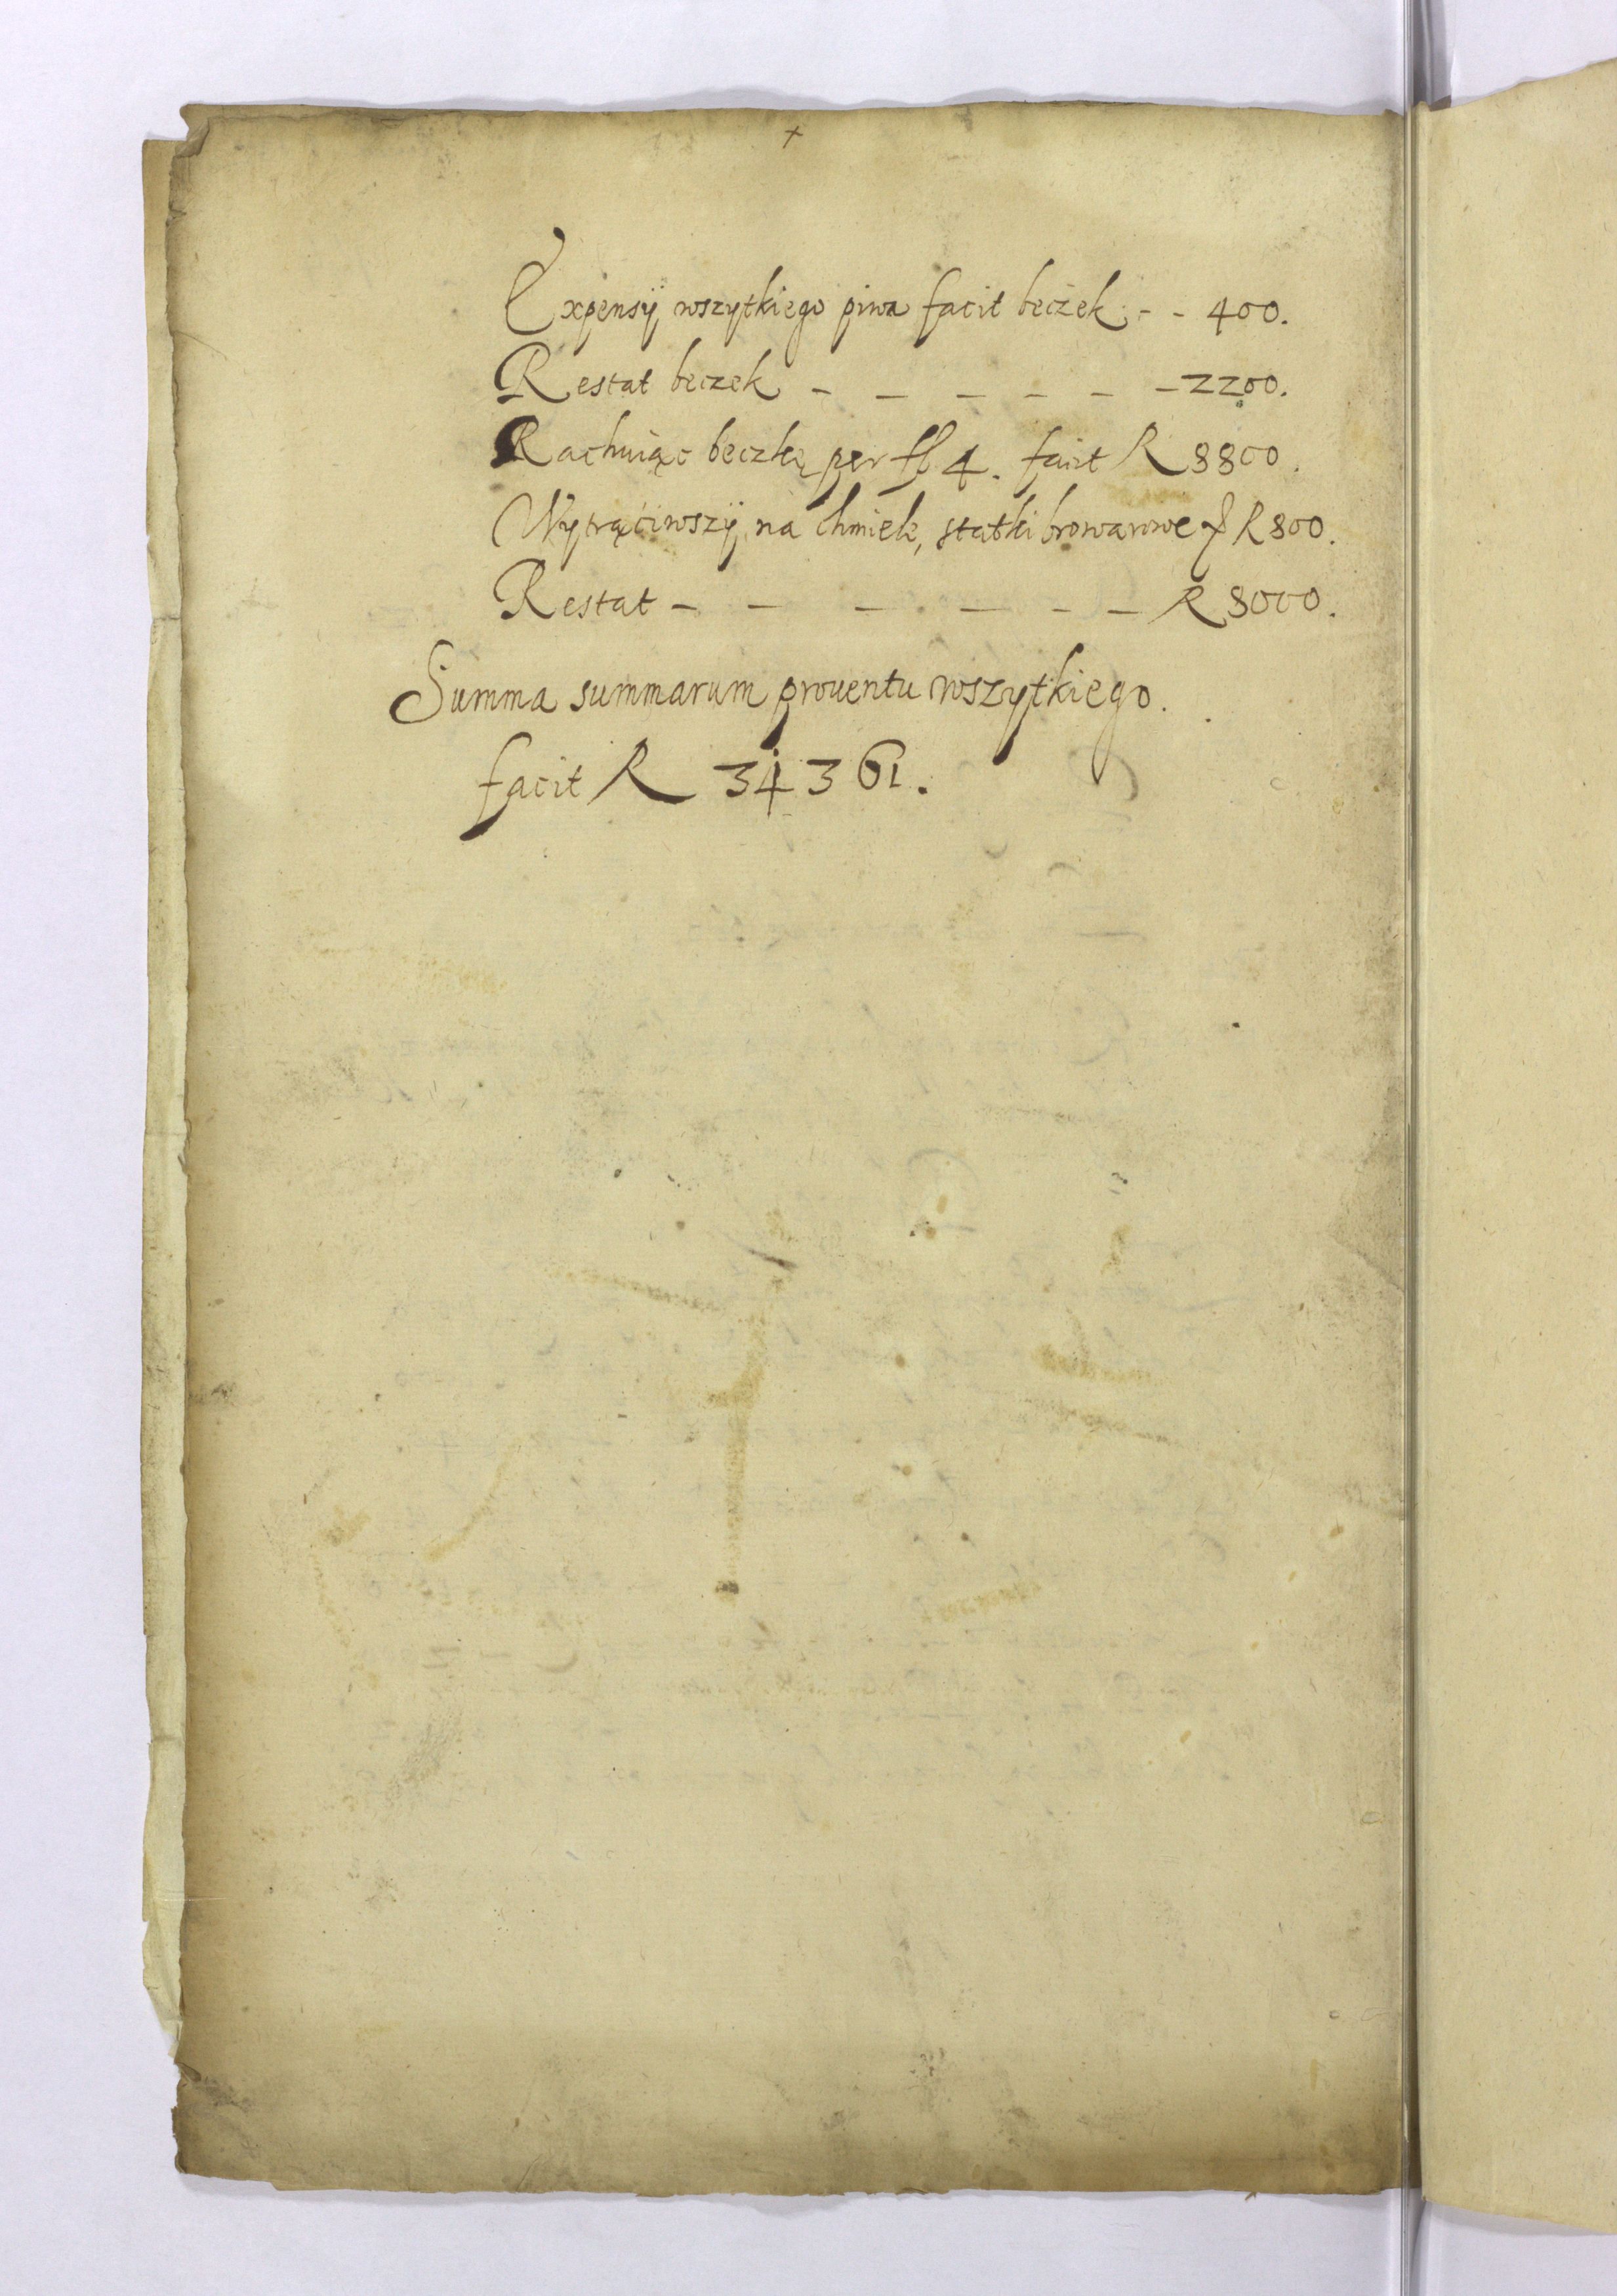 Expensÿ wszytkiego piwa facit beczek - - 400.
Restat beczek - - - - - - 2200.
Rachuiąc beczkę per fl 4. facit R 8800.
Wytrąciwszÿ na chmiele, statki browarowe R 800.
Restat - - - - - - R 8000.
Summa summarum prouentu wszytkiego.
facit R 34361.